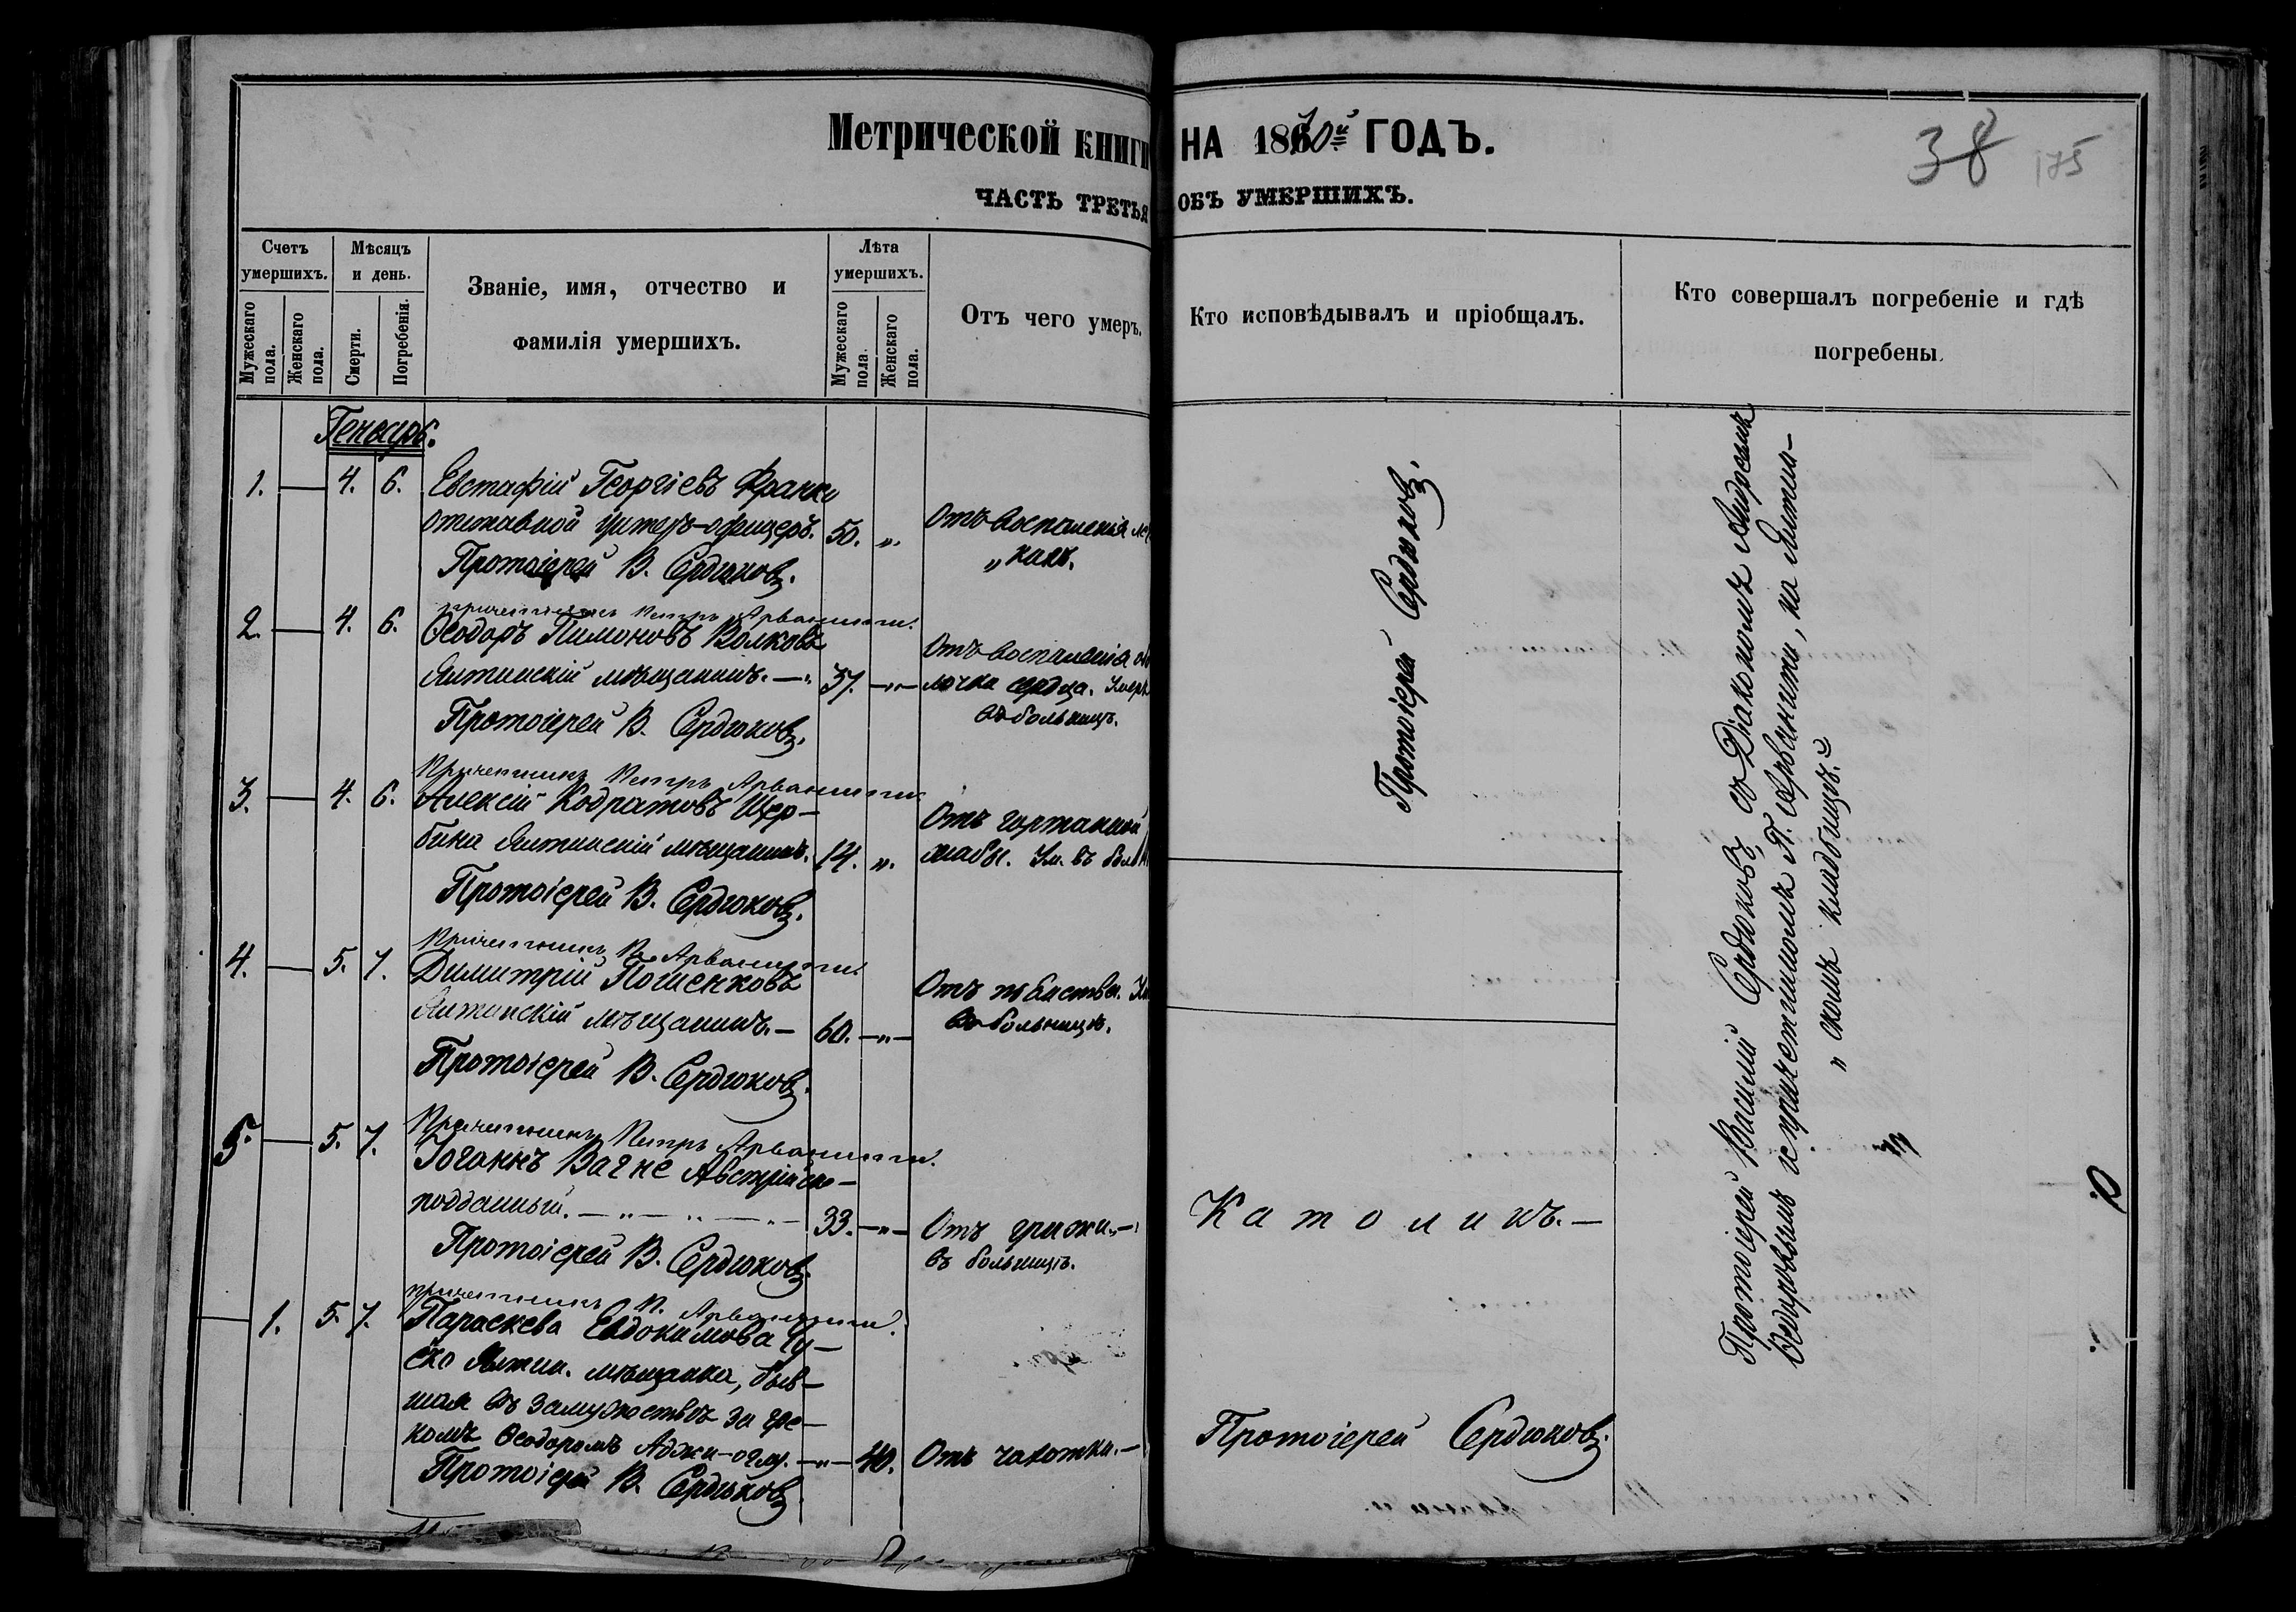 Метрической книги НА 1870й ГОДЪ.
ЧАСТЬ ТРЕТЬЯ ОБЪ УМЕРШИХЪ.
38 175
Счетъ умершихъ.
Мужескаго пола.
Женскаго пола.
Мѣсяцъ и день.
Смерти.
Погребенія.
Званіе, имя, отчество и
фамилія умершихъ.
Лѣта умершихъ.
Мужескаго пола.
Женскаго пола.
Отъ чего умеръ.
Кто исповѣдывалъ и пріобщалъ.
Кто совершалъ погребеніе и гдѣ
погребены.
Генварь.
1. — 4. 6. Евстафій Георгіевъ Франко
отставной унтеръ-офицеръ. 50. „ Отъ воспаленія
Протоіерей В. Сердюковъ.
причетникъ Петръ Арванити.
2. — 4. 6. Ѳеодоръ Пимоновъ Волковъ
Ялтинскій мѣщанинъ. — „ 37. —„— Отъ воспаленія обо
лочки сердца. Умеръ
въ больницѣ.
Протоіерей В. Сердюковъ.
Причетникъ Петръ Арванити.
3. — 4. 6. Алексій Кодратовъ Щер-
бина Ялтинскій мѣщанинъ. 14. „ Отъ гортанной
жабы. Ум. въ бол
Протоіерей В. Сердюковъ.
Причетникъ П. Арванити.
4. — 5. 7. Димитрій Пошенковъ
Ялтинскій мѣщанинъ. — 60. —„—
въ больницѣ.
Протоіерей В. Сердюковъ.
Причетникъ Петръ Арванити.
5. — 5. 7. Іоганнъ Вагне Австрійско-
подданный. — „ — „ — „ — 33. —„— Отъ грыжи. —
въ больницѣ.
Протоіерей В. Сердюковъ.
причетникъ П. Арванити.
— 1. 5. 7. Параскева Евдокимова
Ялтин. мѣщанка, быв-
шая въ замужествѣ за гре-
комъ Ѳеодоромъ Аджи-оглу. —„— 40. Отъ чахотки. —
Протоіерей В. Сердюковъ
Протоіерей Сердюковъ.
Католикъ. —
Протоіерей Сердюковъ.
Протоіерей Василій Сердюковъ, съ Діакономъ Андреемъ
и причетникомъ П. Арванити, на Ялтин-
„ скомъ кладбищѣ.